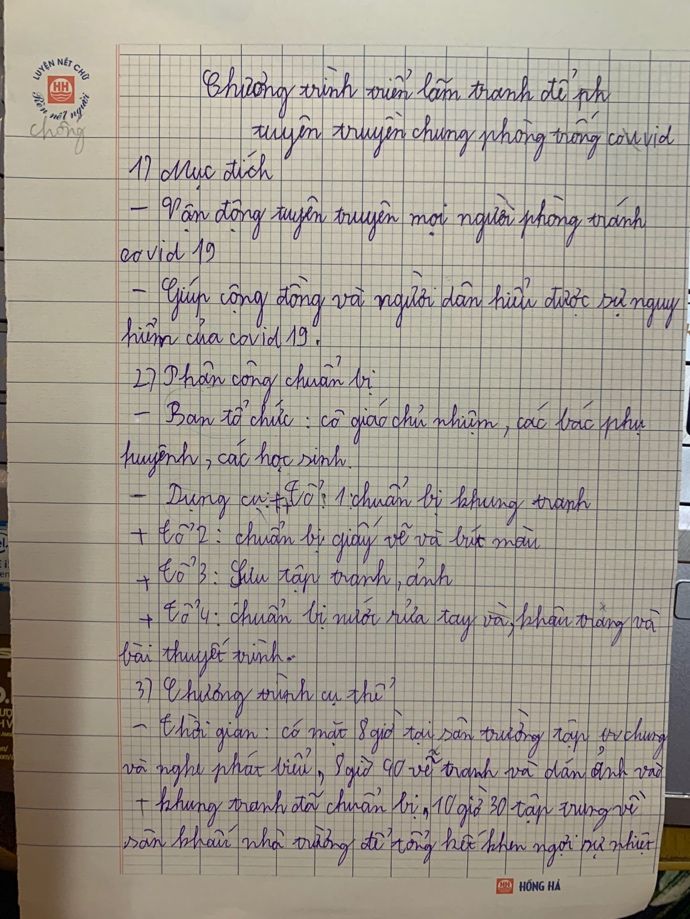 LUYỆN NẾT CHỮ
HH
Rèn nết người
chống
Chương trình triển lãm tranh để ph
tuyên truyền chung phòng trống couvid
1) Mục đích
- Vận động tuyên truyền mọi người phòng tránh
covid 19
- Giúp cộng đồng và người dân hiểu được sự nguy
hiểm của covid 19.
2) Phân công chuẩn bị
- Ban tổ chức : cô giáo chủ nhiệm, các bác phụ
huynh, các học sinh.
- Dụng cụ : + Tổ 1 : chuẩn bị khung tranh
+ Tổ 2 : chuẩn bị giấy vẽ và bút màu
+ Tổ 3 : Sưu tập tranh, ảnh
+ Tổ 4 : chuẩn bị nước rửa tay và, khẩu trang và
bài thuyết trình.
3) Chương trình cụ thể
- Thời gian : có mặt 8 giờ tại sân trường tập tr chung
và nghe phát biểu, 8 giờ 40 vẽ tranh và dán ảnh vào
+ khung tranh đã chuẩn bị, 10 giờ 30 tập trung về
sân khấu nhà trường để tổng kết khen ngợi sự nhiệt
HH HỒNG HÀ